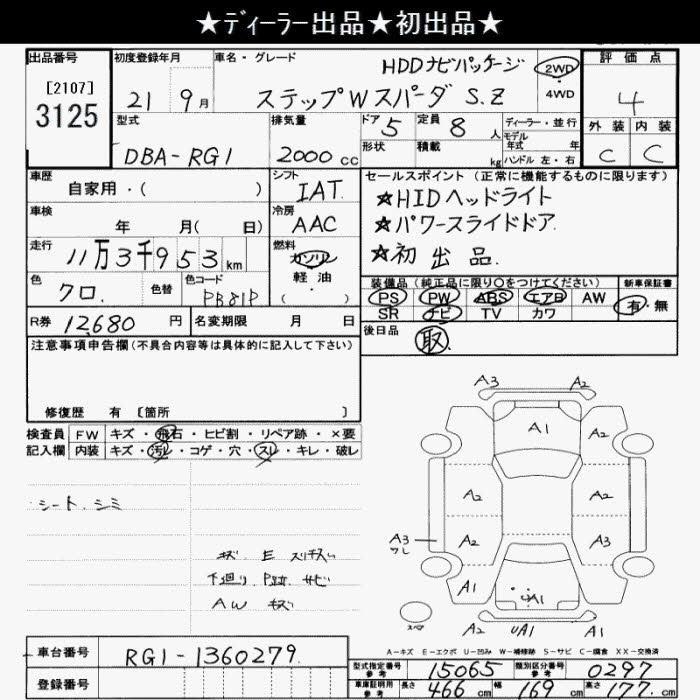 ★ディーラー出品★初出品★
出品番号
[2107]
3125
初度登録年月
21 9月
車名・グレード
HDDナビパッケージ
ステップWスパーダ S.Z
2WD
4WD
評価点
4
外装 内装
C C
型式
DBA-RG1
排気量
2000cc
ドア 5
形状
定員 8人
積載 kg
ディーラー・並行
モデル
年式 年
ハンドル 左・右
車歴
自家用・( )
シフト
IAT
車検
年 月( 日)
冷房
AAC
走行
11万3千953km
燃料
ガソリン
軽油
( )
色
クロ.
色替
色コード
PB81P
セールスポイント (正常に機能するものに限ります)
☆HIDヘッドライト
☆パワースライドドア.
☆初出品.
装備品 (純正品に限り○をつけてください)
PS PW ABS エアB AW
SR ナビ TV カワ
新車保証書
有・無
後日品
取
R券 12,680円
名変期限 月 日
注意事項申告欄(不具合内容等は具体的に記入して下さい)
修復歴 有 [箇所 ]
検査員
記入欄
FW キズ・飛石・ヒビ割・リペア跡・×要
内装 キズ・汚レ・コゲ・穴・スレ・キレ・破レ
シート.シミ
キズ. E スリキズ
下廻り. サビ
AW キズ
A3 A2
A1
A2
A2 A2
A3
ワレ
A2 A3
A1 A1
A1
スペア
UA1 A1
A-キズ E-エクボ U-凹み W-補修跡 S-サビ C-腐食 XX-交換済
車台番号
RG1-1360279.
登録番号
型式指定番号
参考
15065
類別区分番号
参考
0297
車庫証明用
参考
長さ 466cm 幅 169cm 高さ 177cm